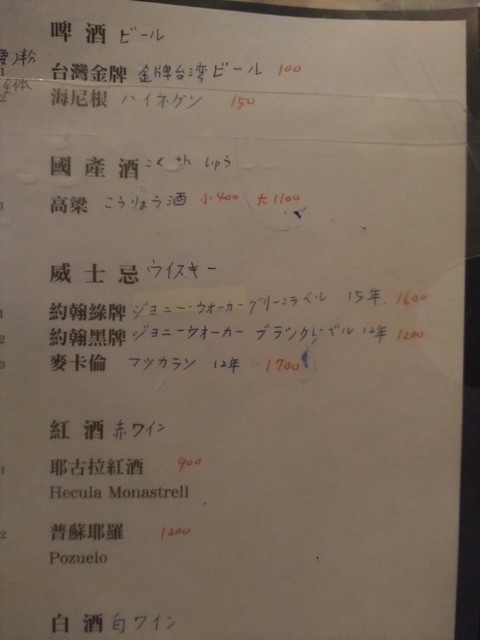 啤酒 ビール
台灣金牌 金牌台湾ビール 100
海尼根 ハイネゲン 150
國產酒 こくさんしゅう
1 高粱 こうりょう酒 小400 大1100
威士忌 ウイスキー
1 約翰綠牌 ジョニーウォーカーグリーンラベル 15年 1600
2 約翰黑牌 ジョニーウォーカー ブラックレーベル 12年 1200
3 麥卡倫 マッカラン 12年 1700
紅酒 赤ワイン
1 耶古拉紅酒 900
Hecula Monastrell
2 普蘇耶羅 1200
Pozuelo
白酒 白ワイン